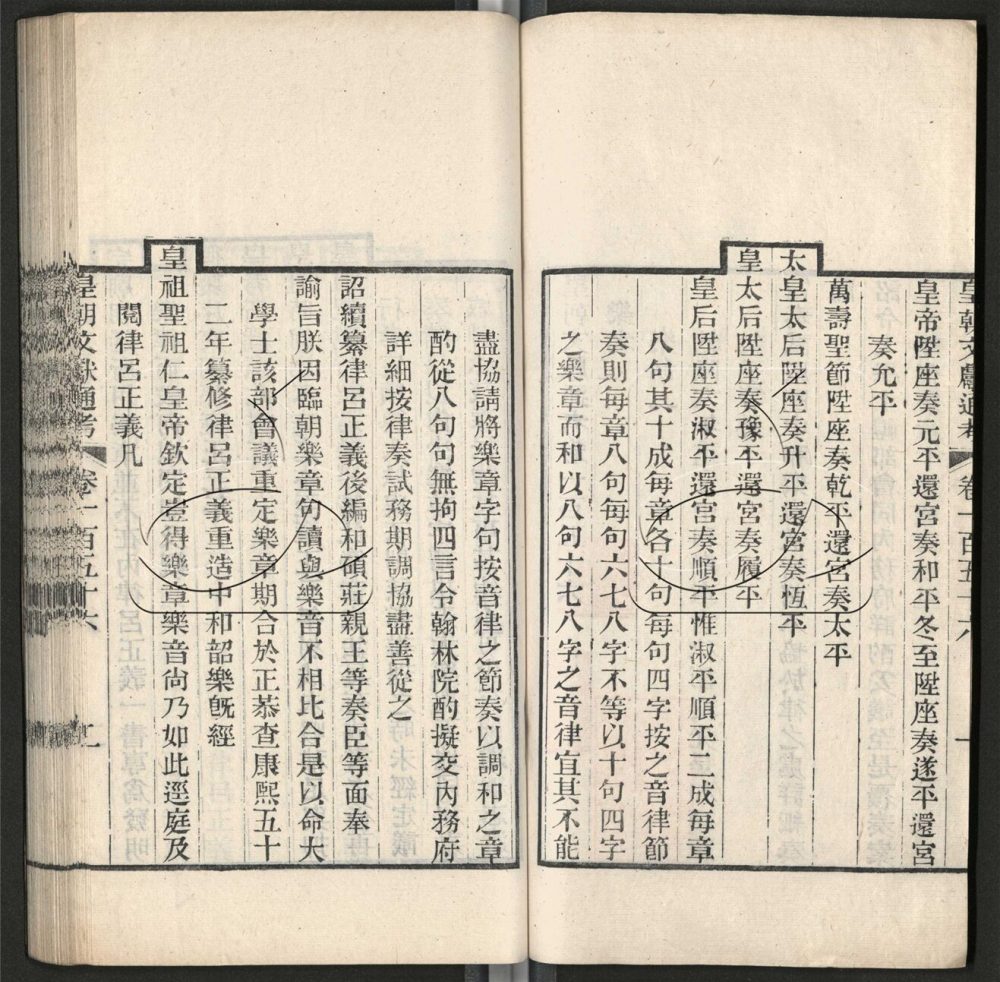 皇朝文獻通考 卷一百五十六
皇帝陞座奏元平還宮奏和平冬至陞座奏遂平還宮
奏允平
萬壽聖節陞座奏乾平還宮奏太平
太皇太后陞座奏升平還宮奏恆平
皇太后陞座奏豫平還宮奏履平
皇后陞座奏淑平還宮奏順平惟淑平順平二成每章
八句其十成每章各十句每句四字按之音律節
奏則每章八句每句六七八字不等以十句四字
之樂章而和以八句六七八字之音律宜其不能
盡協請將樂章字句按音律之節奏以調和之章
酌從八句句無拘四言令翰林院酌擬交內務府
詳細按律奏試務期調協盡善從之
詔續纂律呂正義後編和碩莊親王等奏臣等面奉
諭旨朕因臨朝樂章句讀與樂音不相比合是以命大
學士該部會議重定樂章期合於正茶查康熙五十
二年纂修律呂正義重造中和韶樂旣經
皇祖聖祖仁皇帝欽定豈得樂章樂音尙乃如此逕庭及
閱律呂正義凡
皇朝文獻通考 卷一百五十六